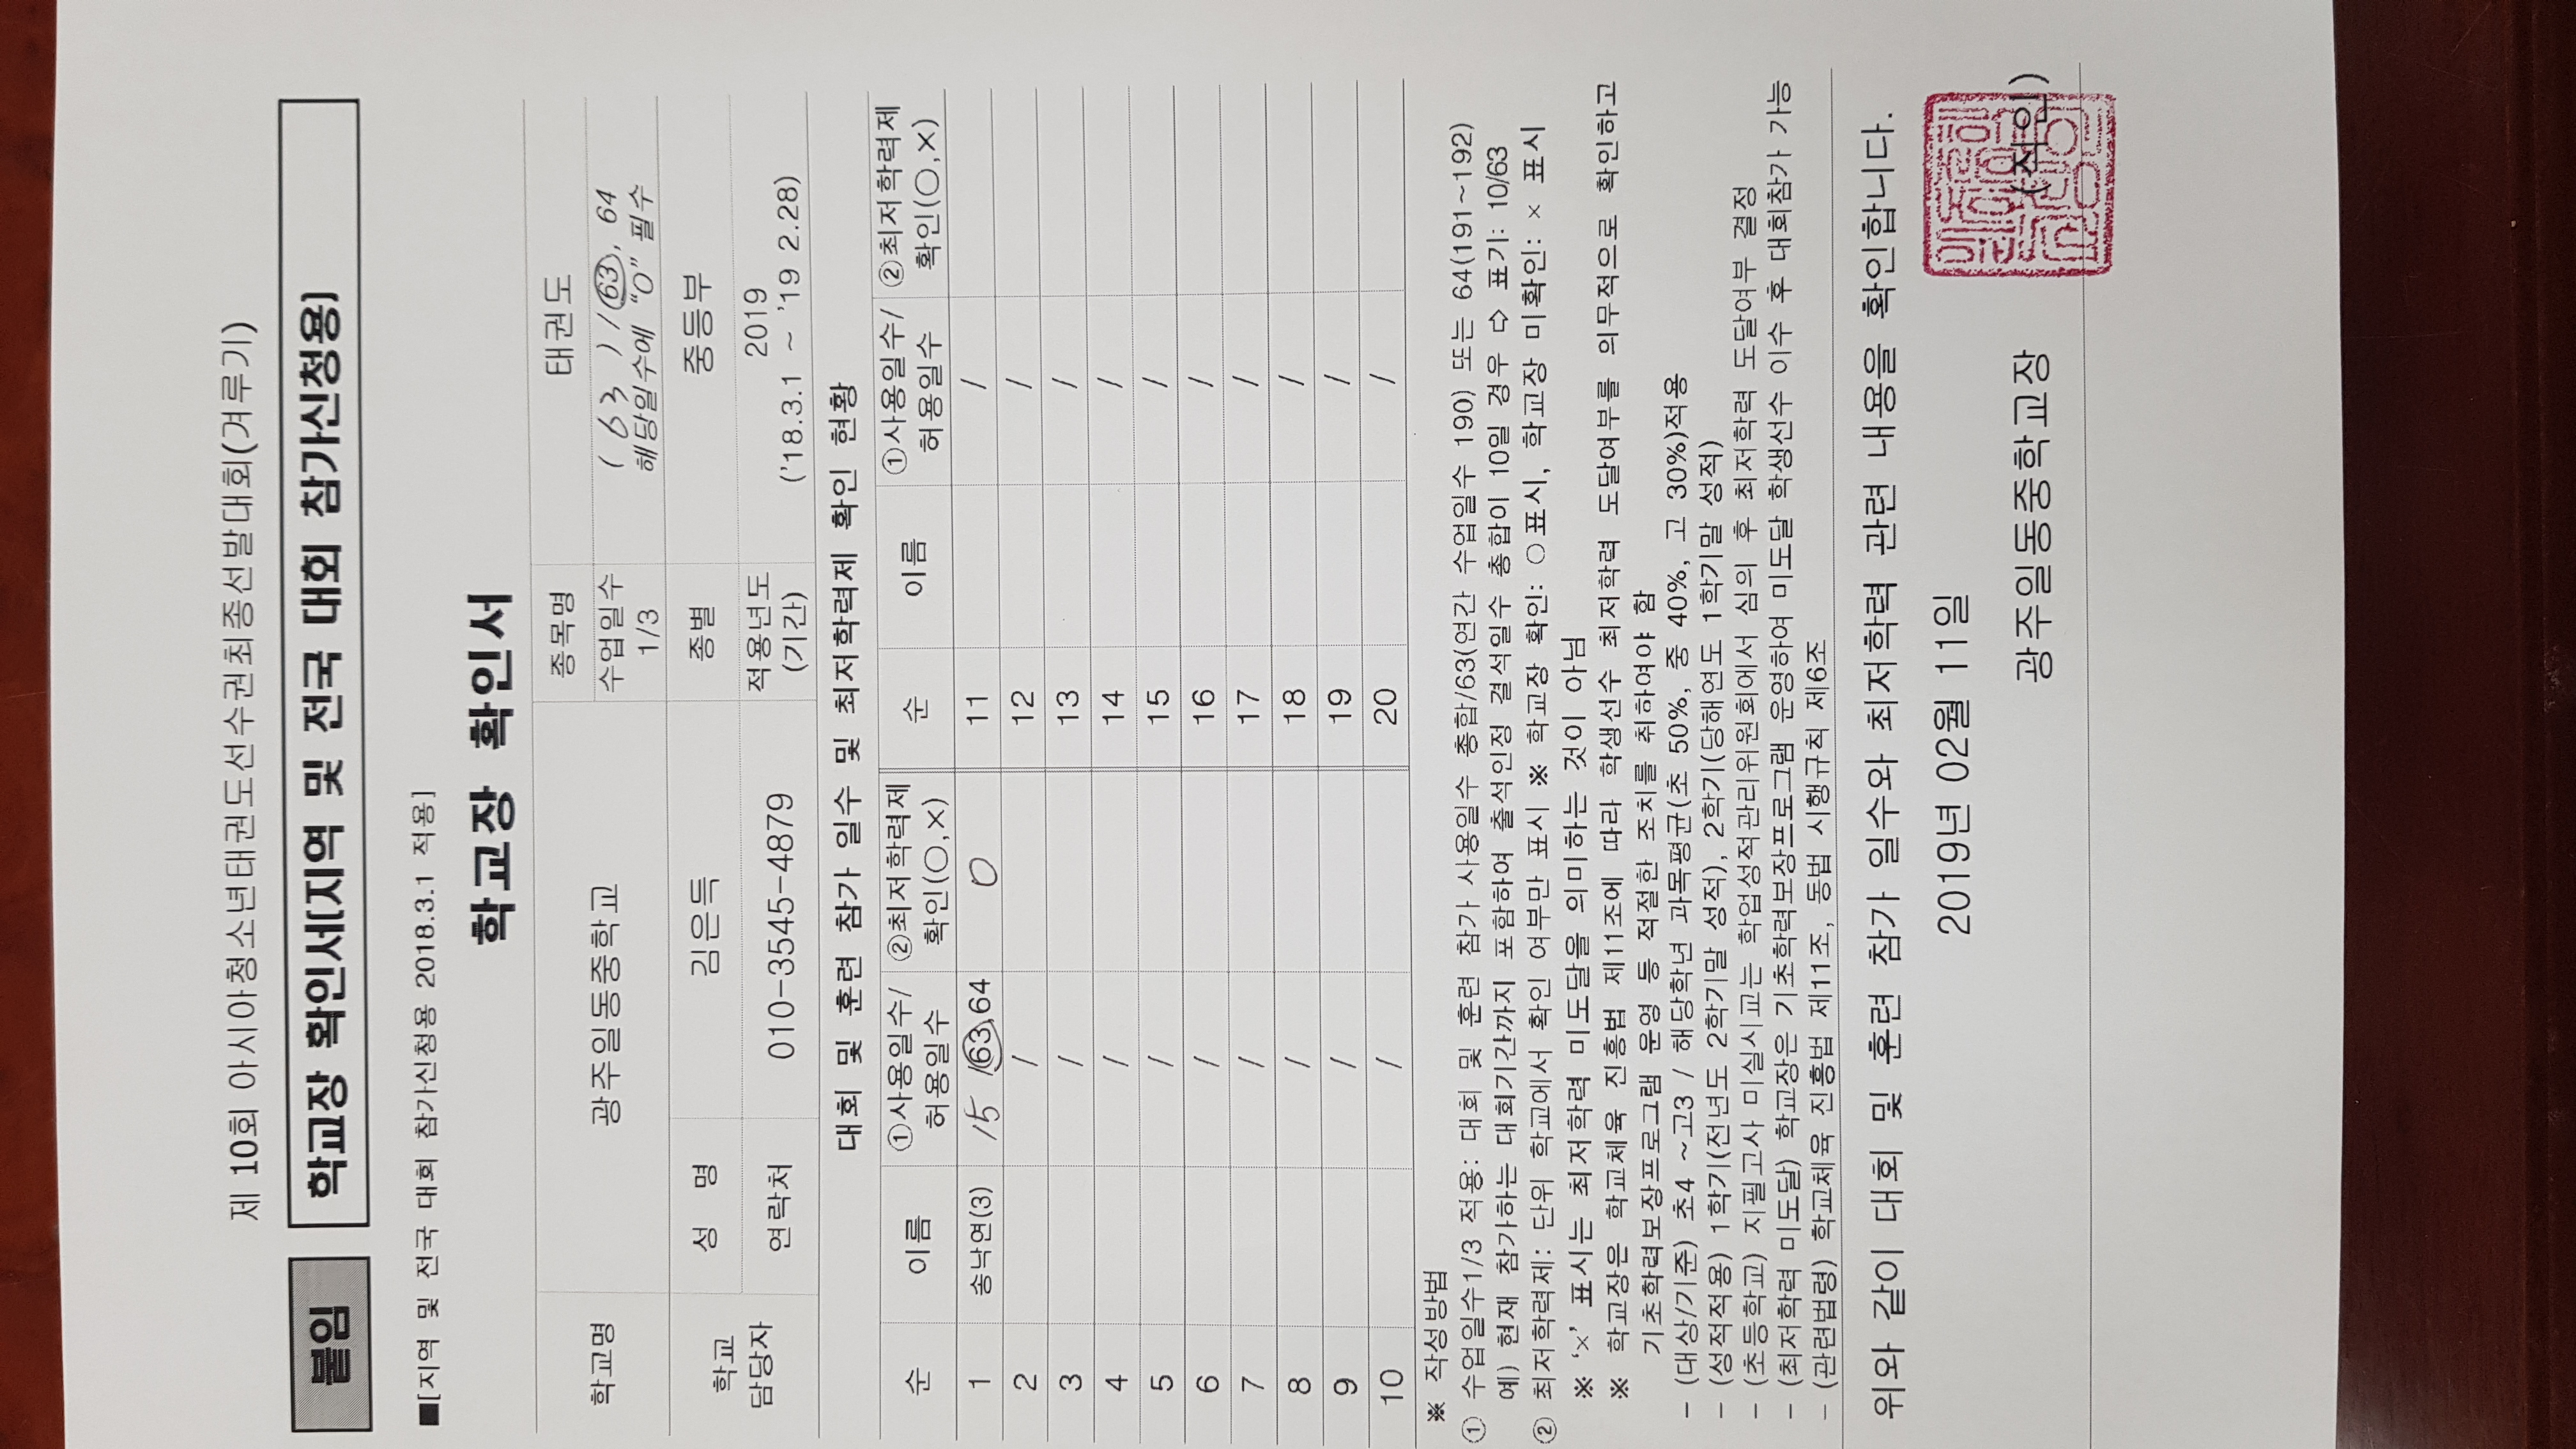 제 10회 아시아청소년태권도선수권최종선발대회(겨루기)
붙임 학교장 확인서[지역 및 전국 대회 참가신청용]
■[지역 및 전국 대회 참가신청용 2018.3.1 적용]
학교장 확인서
학교명 광주일동중학교 종목명 태권도
수업일수 1/3 ( 63 ) / 63, 64
해당일수에 "O" 필수
학교 담당자 성 명 김은득 종별 중등부
연락처 010-3545-4879 적용년도 (기간) 2019
('18.3.1 ~ '19 2.28)
대회 및 훈련 참가 일수 및 최저학력제 확인 현황
순 이름 ①사용일수/ 허용일수 ②최저학력제 확인(○,×) 순 이름 ①사용일수/ 허용일수 ②최저학력제 확인(○,×)
1 송낙연(3) 15 /63,64 O 11 /
2 / 12 /
3 / 13 /
4 / 14 /
5 / 15 /
6 / 16 /
7 / 17 /
8 / 18 /
9 / 19 /
10 / 20 /
※ 작성방법
① 수업일수1/3 적용: 대회 및 훈련 참가 사용일수 총합/63(연간 수업일수 190) 또는 64(191~192)
예) 현재 참가하는 대회기간까지 포함하여 출석인정 결석일수 총합이 10일 경우 ⇨ 표기: 10/63
② 최저학력제: 단위 학교에서 확인 여부만 표시 ※ 학교장 확인: ○표시, 학교장 미확인: × 표시
※ '×' 표시는 최저학력 미도달을 의미하는 것이 아님
※ 학교장은 학교체육 진흥법 제11조에 따라 학생선수 최저학력 도달여부를 의무적으로 확인하고
기초학력보장프로그램 운영 등 적절한 조치를 취하여야 함
- (대상/기준) 초4 ~고3 / 해당학년 과목평균(초 50%, 중 40%, 고 30%)적용
- (성적적용) 1학기(전년도 2학기말 성적), 2학기(당해연도 1학기말 성적)
- (초등학교) 지필고사 미실시교는 학업성적관리위원회에서 심의 후 최저학력 도달여부 결정
- (최저학력 미도달) 학교장은 기초학력보장프로그램 운영하여 미도달 학생선수 이수 후 대회참가 가능
- (관련법령) 학교체육 진흥법 제11조, 동법 시행규칙 제6조
위와 같이 대회 및 훈련 참가 일수와 최저학력 관련 내용을 확인합니다.
2019년 02월 11일
광주일동중학교장 (직인)